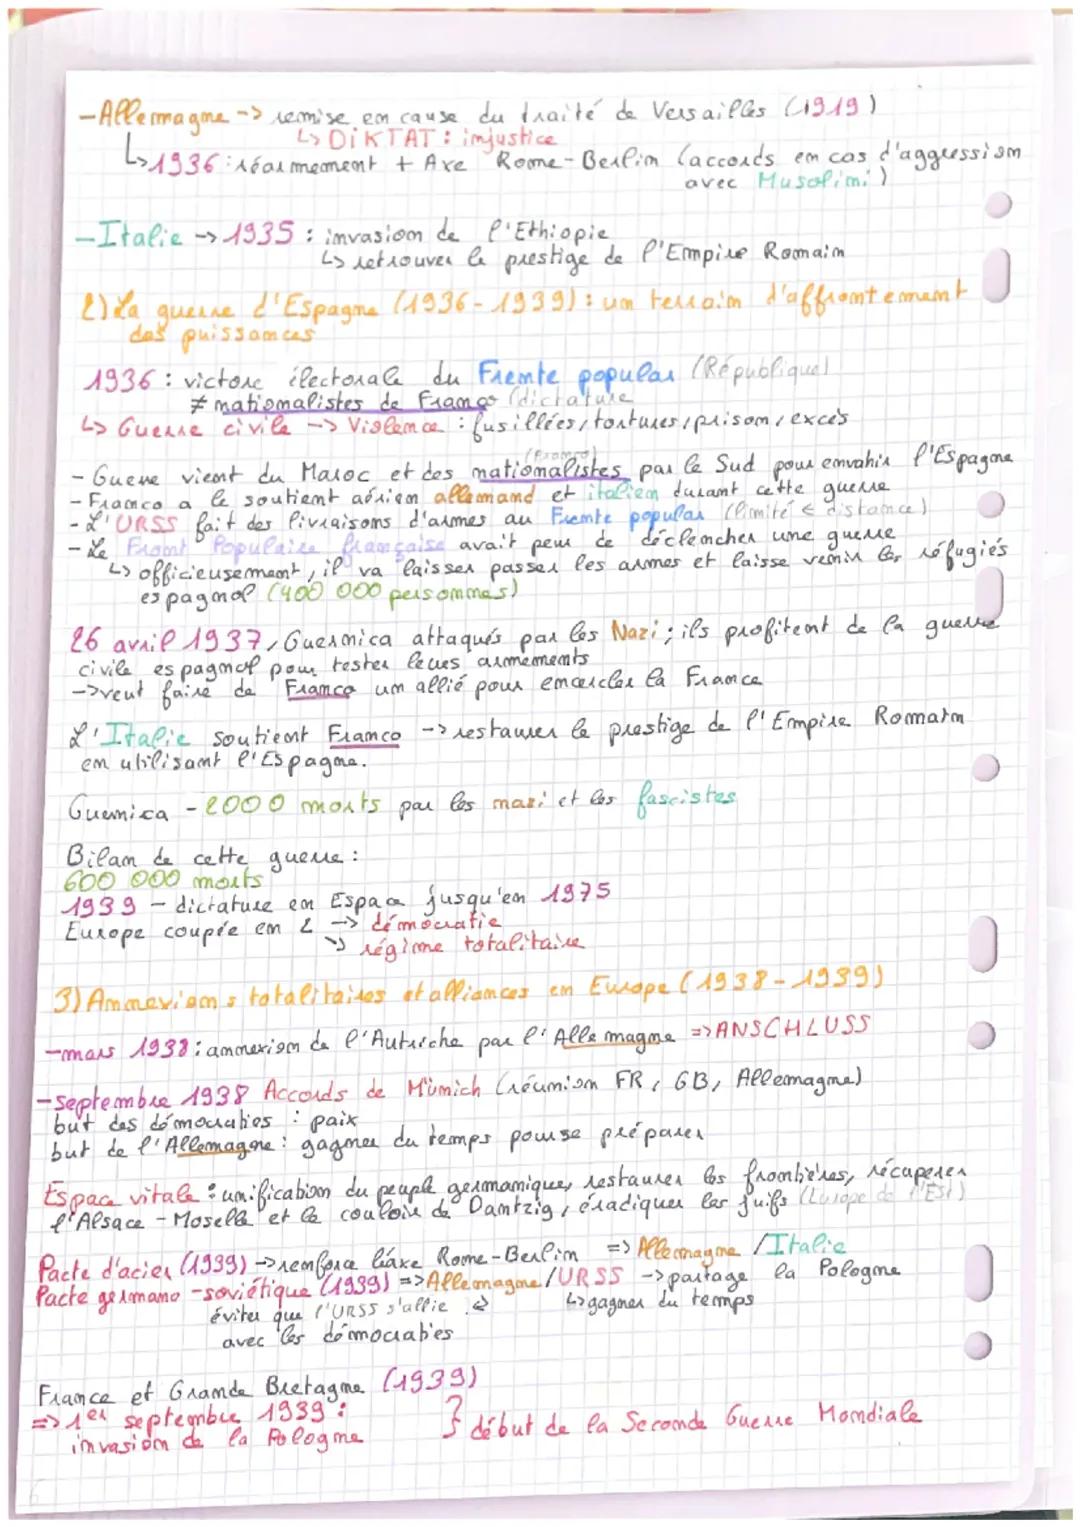 -Allemagne -> remise en cause du traité de Versailles (1919)
↳ DiKTAT : imjustice
↳1936 : réarmement + Axe Rome-Berlim (accords em cas d'aggression
avec Musolimi)
-Italie -> 1935 : imvasion de l'Ethiopie
↳ retrouver le prestige de l'Empire Romaim
2) La guerre d'Espagne (1936-1939) : um terraim d'affromtement
des puissamces
1936 : victore électorale du Fremte popular (République)
≠ mationalistes de Framco (dictature
↳ Guerre civile -> Violemce : fusillées, tortures, prison, excès
(Framco)
- Guerre vient du Maroc et des mationalistes par le Sud pour emvahir l'Espagne
- Framco a le soutient aérien allemand et italiem durant cette guerre
- L'URSS fait des livraisoms d'armes au Fremte popular (limité ← distamce)
- Le Fromt Populaire française avait peur de déclemcher une guerre
↳ officieusement, il va laisser passer les armes et laisse vemir les réfugiés
espagmol (400 000 persommes)
26 avril 1937, Guermica attaqués par les Nazi ; ils profitemt de la guerre
civile espagmol pour tester leurs armements
->veut faire de Framco um allié pour emcercler la France
L'Italie soutient Framco -> restaurer le prestige de l'Empire Romaim
em utilisamt l'Espagne.
Guernica - 2000 morts par les mazi et les fascistes
Bilam de cette guerre :
600 000 morts
1939 - dictature en Espaa jusqu'em 1975
Europe coupée em 2 -> démocratie
↘ régime totalitaire
3) Ammexioms totalitaires et alliamces em Europe (1938-1939)
-mars 1938 : ammexiom de l'Autriche par l'Allemagne => ANSCHLUSS
-septembre 1938 Accords de Mumich (réumiom FR, GB, Allemagne)
but des démocraties : paix
but de l'Allemagne : gagmer du temps pourse préparer
Espace vitale : umificatiom du peuple germamique, restaurer les fromtières, récuperer
l'Alsace - Moselle et le couloir de Damtzig, éradiquer les juifs (Europe de l'Est)
Pacte d'acier (1939) -> remforce l'axe Rome-Berlim => Allemagne / Italie
Pacte germamo -soviétique (1939) => Allemagne / URSS -> partage la Pologne
éviter que l'URSS s'allie ↳gagmer du temps
avec les démocraties
Framce et Gramde Bretagme (1939)
=> 1er septembre 1939 : } début de la Secomde Guerre Momdiale
imvasiom de la Pologme